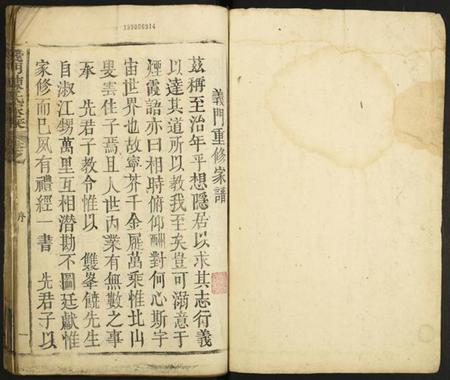 義門重修家譜
茲稱至治年平想隱居以求其志行義
以達其道所以教我至矣豈可溺意于
煙霞語亦曰相時俯仰酬對何心斯宇
宙世界也故寧芥千金屣萬乘惟北山
叟雲住子焉且人世內業有無數之事
承 先君子教令惟以 雙峯饒先生
自淑江甥萬里互相潛勘不圖廷獻惟
家修而已夙有禮經一書 先君子以